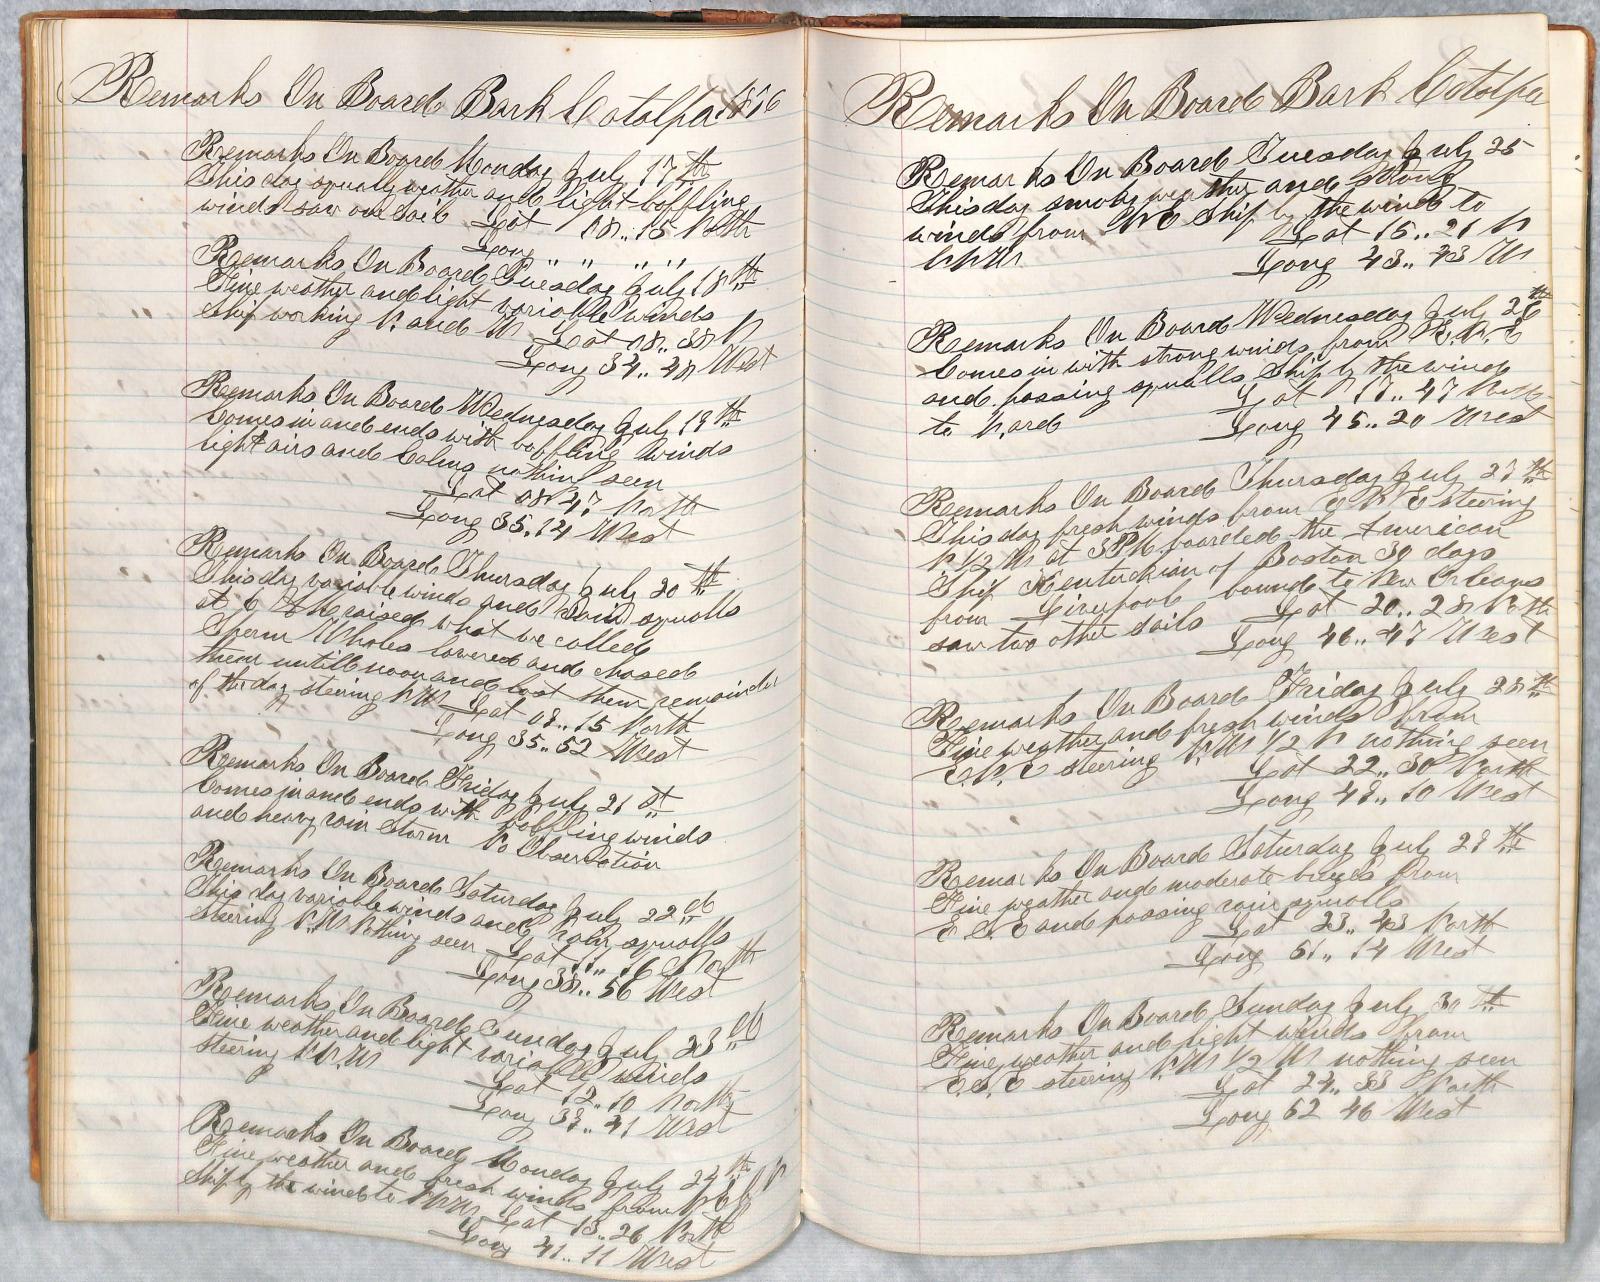 Remarks On Board Bark Catalpa 1876
Remarks On Board Monday July 17th
This day squally weather and light baffling
winds saw one sail Lat 08.. 15 North
Long ,, ,, ,, ,,
Remarks On Board Tuesday July 18th
Fine weather and light variable winds
Ship working N. and W Lat 08.. 38 N
Long 34.. 48 West
Remarks On Board Wednesday July 19th
Comes in and ends with baffling winds
light airs and Calms nothing seen
Lat 08 47 North
Long 35.14 West
Remarks On Board Thursday July 20th
This day variable winds and rain squalls
at 6 AM raised what we called
Sperm Whales lowered and chased
them untill noon and lost them remainder
of the day steering NW Lat 09.. 15 North
Long 35.. 52 West
Remarks On Board Friday July 21st
Comes in and ends with baffling winds
and heavy rain storm No Observation
Remarks On Board Saturday July 22nd
This day variable winds and rain squalls
Steering N.W Nothing seen Lat 11.. 16 North
Long 38.. 56 West
Remarks On Board Sunday July 23rd
Fine weather and light variable winds
steering N.W Lat 12.. 10 North
Long 39.. 41 West
Remarks On Board Monday July 24th
Fine weather and fresh winds from
Ship by the wind to NNW Lat 13.. 26 North
Long 41.. 11 West
Remarks On Board Bark Catalpa
Remarks On Board Tuesday July 25
This day smoky weather and strong
winds from NE Ship by the wind to
NNW Lat 15.. 21 N
Long 43.. 43 W
Remarks On Board Wednesday July 26th
Comes in with strong winds from E.N.E
and passing squalls Ship by the wind
to N.ard Lat 17.. 47 North
Long 45.. 20 West
Remarks On Board Thursday July 27th
This day fresh winds from E N E steering
N 1/2 W at 3 PM boarded the American
Ship Kentuckian of Boston 30 days
from Liverpool bound to New Orleans
saw two other sails Lat 20.. 28 North
Long 46.. 47 West
Remarks On Board Friday July 28th
Fine weather and fresh winds from
E.N.E steering N.W 1/2 N nothing seen
Lat 22.. 30 North
Long 49.. 10 West
Remarks On Board Saturday July 29th
Fine weather and moderate breezes from
E.S.E and passing rain squalls
Lat 23.. 43 North
Long 51.. 14 West
Remarks On Board Sunday July 30th
Fine weather and light winds from
E.S.E steering N.W 1/2 W nothing seen
Lat 24.. 33 North
Long 52 46 West